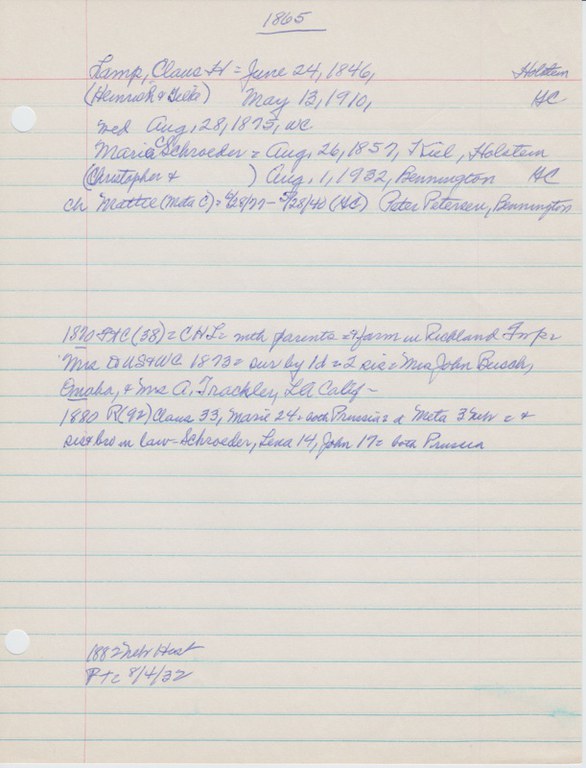 1865
Lamp, Claus H = June 24, 1846, Holstein
(Heinrich & ) May 13, 1910, GC
med Aug, 28, 1875, WC
Maria C Schroeder = Aug, 26, 1857, Kiel, Holstein
(Christopher & ) Aug, 1, 1932, Bennington GC
ch Mattie (Meta C) = 4/28/77 - /28/40 (GC) Peter Petersen, Bennington
1870 (38) = CHL = with parents = farm in Richland Twp =
Mrs to US & WC 1873 = sur by 1d = 2 sis = Mrs John Busch,
Omaha, & Mrs A. Trackler, LA Calif -
1880 R(92) Claus 33, Marie 24 = both Prussia = d Meta 3 Nebr = &
sis & bro in law = Schroeder, Lena 14, John 17 = both Prussia
1882 Nebr Hist
P+c 8/4/32